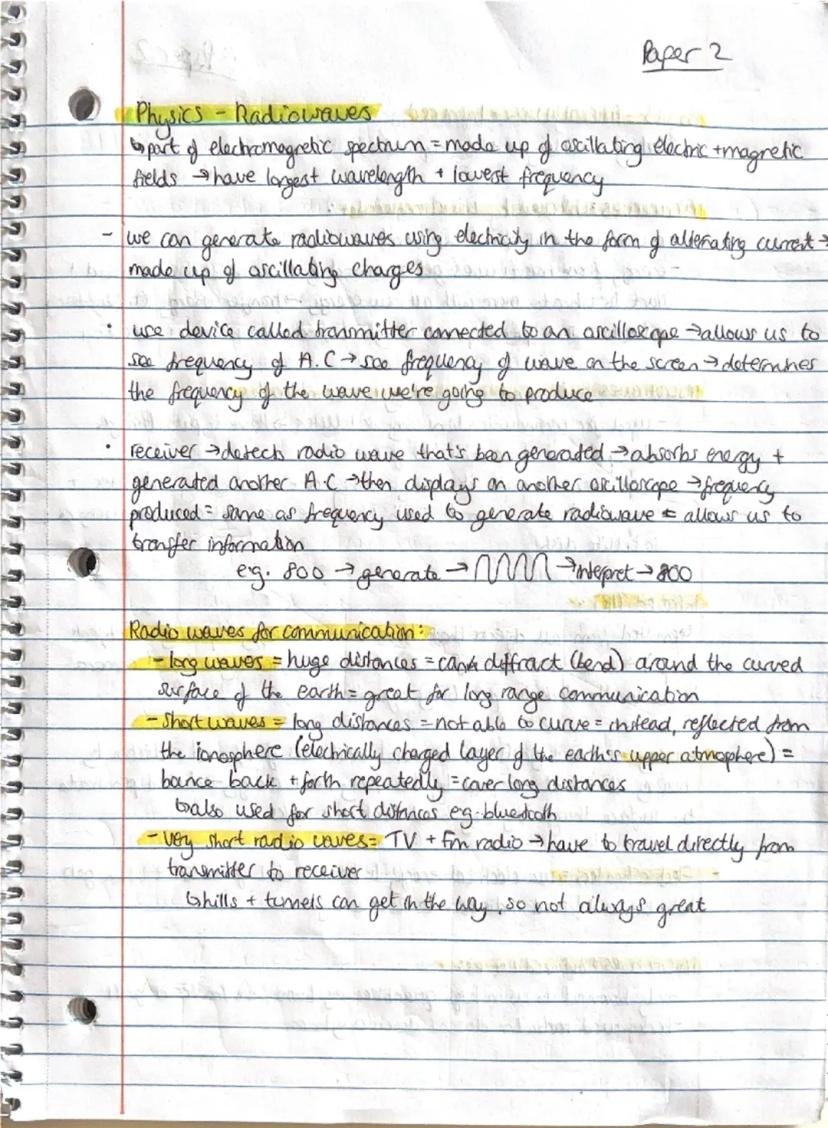 Paper 2
Physics - Radiowaves
↳part of electromagnetic spectrum = made up of oscillating electric + magnetic
fields → have largest wavelength + lowest frequency
- we can generate radiowaves using electricity in the form of alternating current →
made up of oscillating charges
• use device called transmitter connected to an oscilloscope → allows us to
see frequency of A.C → see frequency of wave on the screen → determines
the frequency of the wave we're going to produce
• receiver → detects radio wave that's been generated → absorbs energy +
generated another A.C → then displays on another oscilloscope → frequency
produced = same as frequency used to generate radiowave = allows us to
transfer information
eg. 800 → generate → → intepret → 800
Radio waves for communication:
- long waves = huge distances = can diffract (bend) around the curved
surface of the earth = great for long range communication
- Short waves = long distances = not able to curve = instead, reflected from
the ionosphere (electrically charged layer of the earth's upper atmophere) =
bounce back + forth repeatedly = cover long distances
↳also used for short distances eg. bluetooth
- Very short radio waves = TV + fm radio → have to travel directly from
transmitter to receiver
↳hills + tunnels can get in the way, so not always great